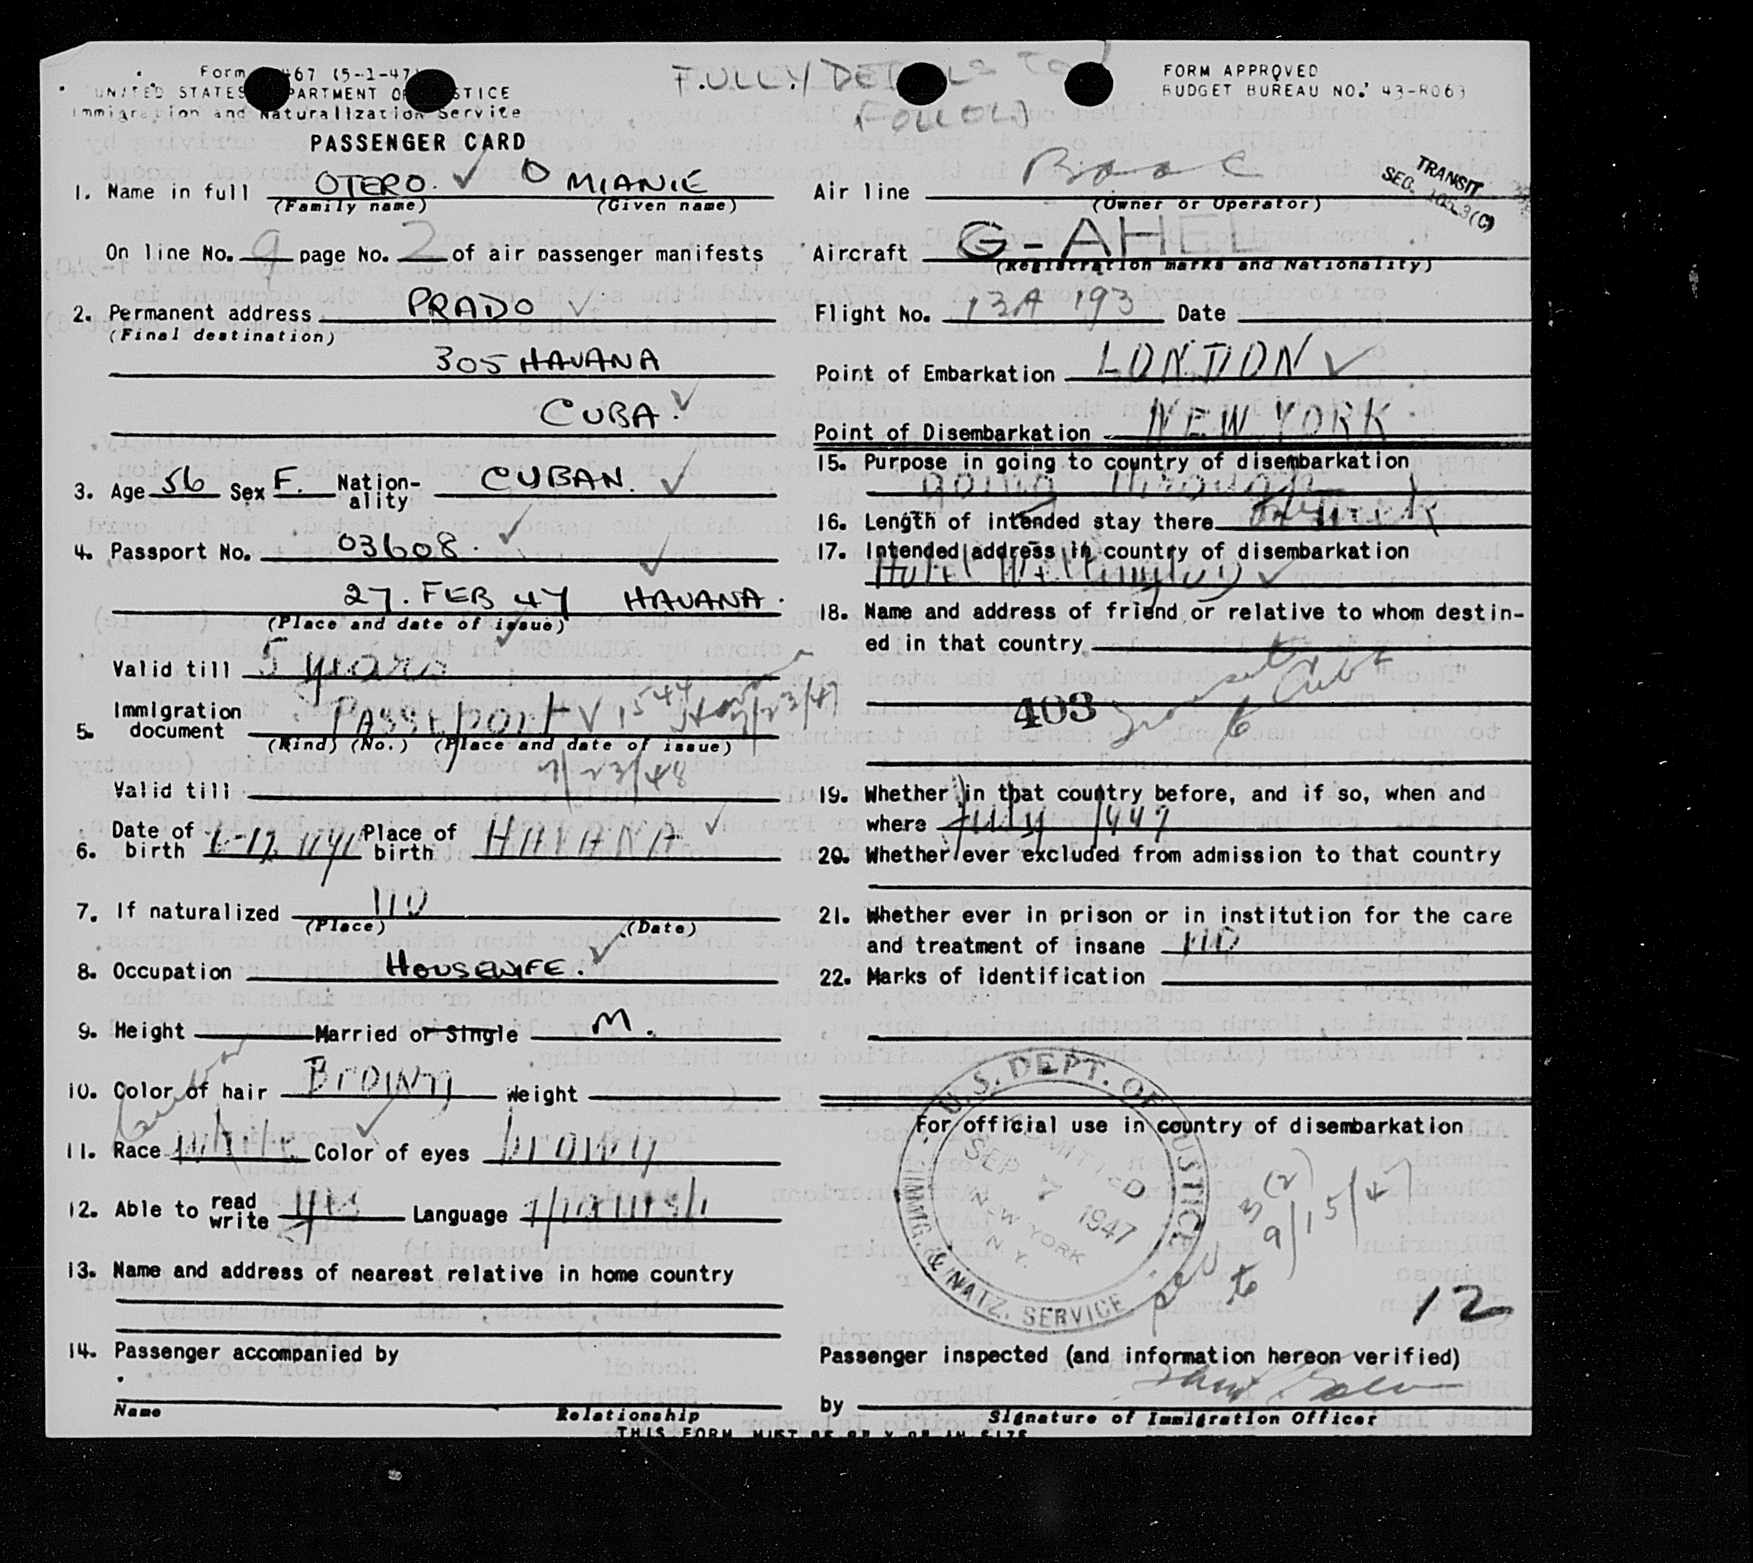 Form 467 (5-1-47)
UNITED STATES DEPARTMENT OF JUSTICE
Immigration and Naturalization Service
PASSENGER CARD
FULLY DETAILS TO
FOLLOW
FORM APPROVED
BUDGET BUREAU NO. 43-R063
1. Name in full OTERO. MIANIE
(Family name) (Given name)
On line No. 9 page No. 2 of air passenger manifests
2. Permanent address PRADO
(Final destination)
305 HAVANA
CUBA.
3. Age 56 Sex F. Nation-ality CUBAN.
4. Passport No. 03608.
27. FEB 47 HAVANA.
(Place and date of issue)
Valid till 5 years
5. Immigration document Passport
(Kind) (No.) (Place and date of issue)
7/23/48
Valid till
6. Date of birth Place of birth HAVANA
7. If naturalized no
(Place) (Date)
8. Occupation HOUSEWIFE.
9. Height Married or Single M.
10. Color of hair Brown Weight
11. Race white Color of eyes brown
12. Able to read write yes Language
13. Name and address of nearest relative in home country
14. Passenger accompanied by
Name Relationship
THIS FORM MUST BE
Air line
(Owner or Operator)
TRANSIT
SEC. 105.3(C)
Aircraft G-AHEL
(Registration marks and Nationality)
Flight No. 13A 193 Date
Point of Embarkation LONDON
Point of Disembarkation NEW YORK
15. Purpose in going to country of disembarkation
going through
16. Length of intended stay there
17. Intended address in country of disembarkation
Hotel Wellington
18. Name and address of friend or relative to whom destin-
ed in that country
403
to Cuba
19. Whether in that country before, and if so, when and
where July 1947
20. Whether ever excluded from admission to that country
21. Whether ever in prison or in institution for the care
and treatment of insane no
22. Marks of identification
For official use in country of disembarkation
U.S. DEPT. OF JUSTICE
ADMITTED
SEP 7 1947
NEW YORK
N. Y.
IMMG. & NATZ. SERVICE
to 9/15/47
12
Passenger inspected (and information hereon verified)
by
Signature of Immigration Officer